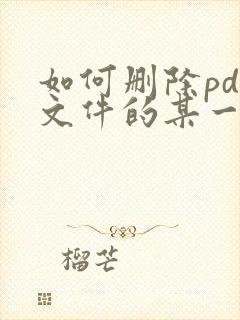 如何删除pd
文件的某一
榴芒